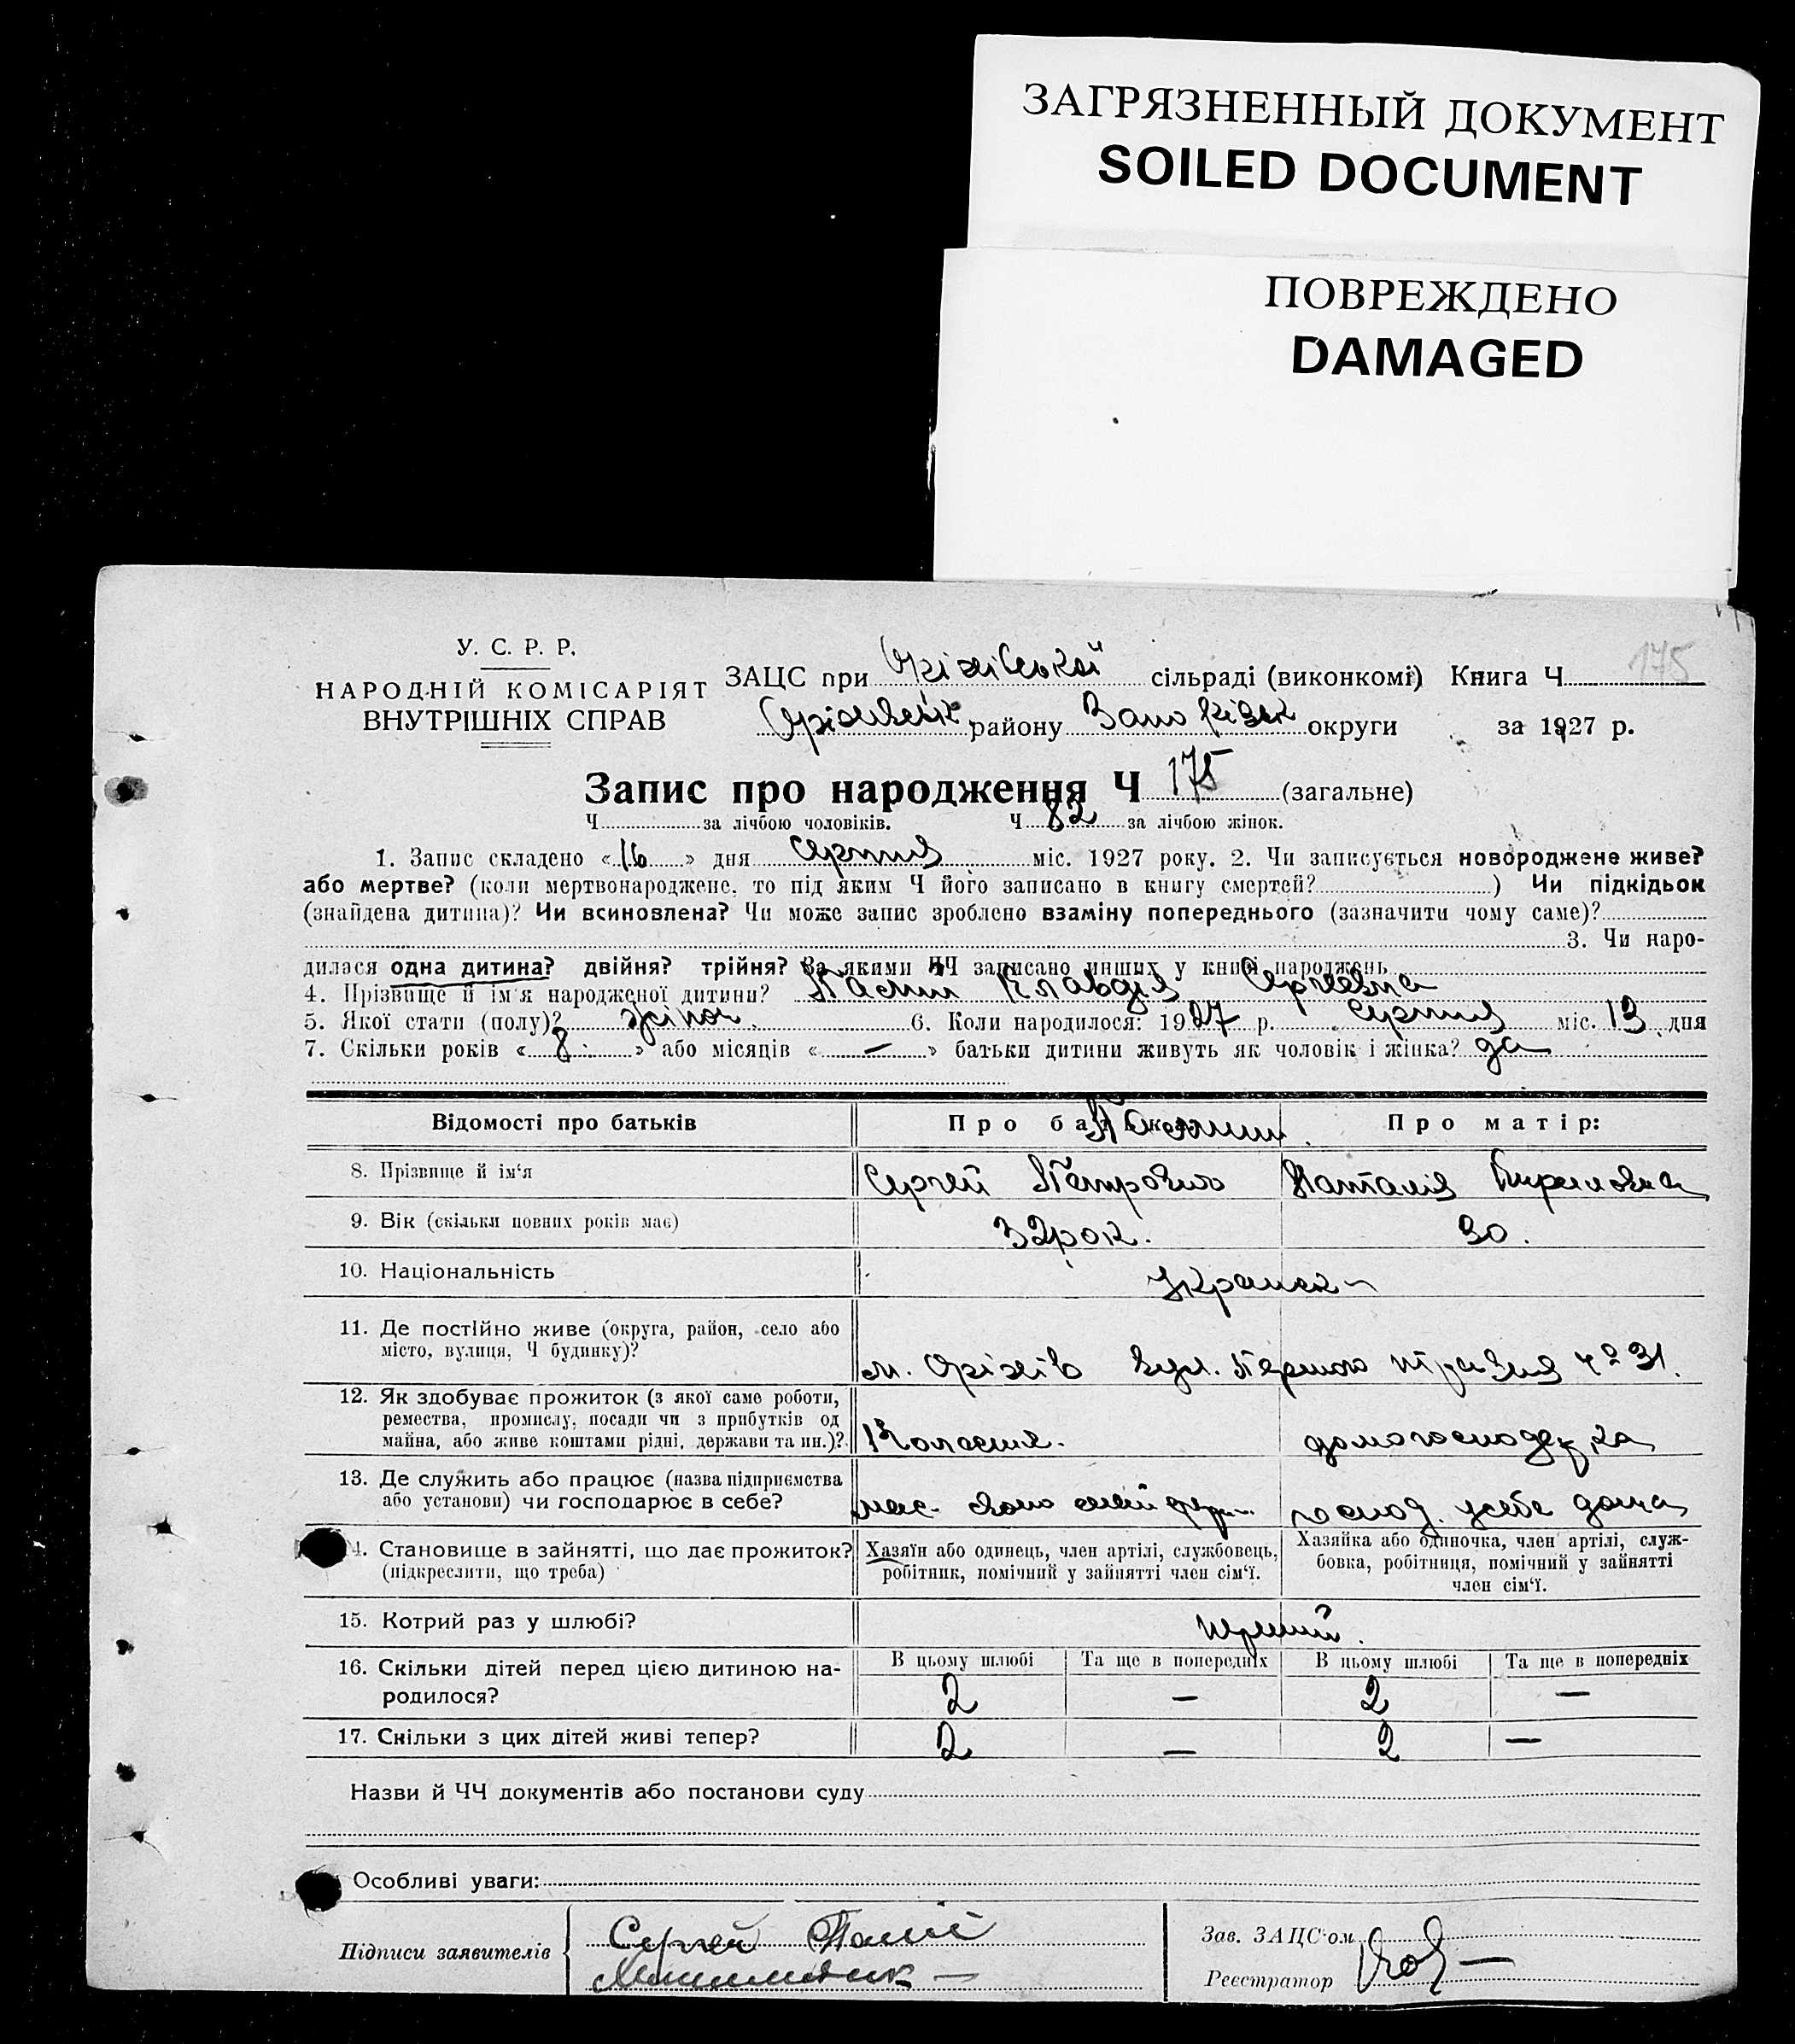 ЗАГРЯЗНЕННЫЙ ДОКУМЕНТ
SOILED DOCUMENT
ПОВРЕЖДЕНО
DAMAGED
У. С. Р. Р.
НАРОДНІЙ КОМІСАРІЯТ
ВНУТРІШНІХ СПРАВ
ЗАЦС при Оріхівської сільраді (виконкомі) Книга Ч 175
району округи за 1927 р.
Запис про народження Ч 175 (загальне)
Ч за лічбою чоловіків. Ч 82 за лічбою жінок.
1. Запис складено «16» дня серпня міс. 1927 року. 2. Чи записується новороджене живе?
або мертве? (коли мертвонароджене, то під яким Ч його записано в книгу смертей? ) Чи підкідьок
(знайдена дитина)? Чи всиновлена? Чи може запис зроблено взаміну попереднього (зазначити чому саме)?
3. Чи наро-
дилася одна дитина? двійня? трійня? За якими ЧЧ записано инших у книзі народжень
4. Прізвище й ім'я народженої дитини? Клавдія
5. Якої статі (полу)? жіноч. 6. Коли народилося: 1927 р. серпня міс. 13 дня
7. Скільки років «8» або місяців «—» батьки дитини живуть як чоловік і жінка? да
Відомості про батьків Про батька: Про матір:
8. Прізвище й ім'я Сергей Петрович Наталія Кириловна
9. Вік (скільки повних років має) 32 рок. 30.
10. Національність
11. Де постійно живе (округа, район, село або
місто, вулиця, Ч будинку)? м. Оріхів вул. Першого травня Ч° 31.
12. Як здобуває прожиток (з якої саме роботи,
ремества, промислу, посади чи з прибутків од
майна, або живе коштами рідні, держави та ин.)?
13. Де служить або працює (назва підприємства
або установи) чи господарює в себе? господ. у себе дома
14. Становище в зайнятті, що дає прожиток?
(підкреслити, що треба)
Хазяїн або одинець, член артілі, службовець,
робітник, помічний у зайнятті член сім'ї.
Хазяйка або одиночка, член артілі, служ-
бовка, робітниця, помічний у зайнятті
член сім'ї.
15. Котрий раз у шлюбі? перший.
16. Скільки дітей перед цією дитиною на-
родилося?
В цьому шлюбі Та ще в попередніх В цьому шлюбі Та ще в попередніх
2 — 2 —
17. Скільки з цих дітей живі тепер? 2 — 2 —
Назви й ЧЧ документів або постанови суду
Особливі уваги:
Підписи заявителів Сергей
Зав. ЗАЦС'ом
Реєстратор